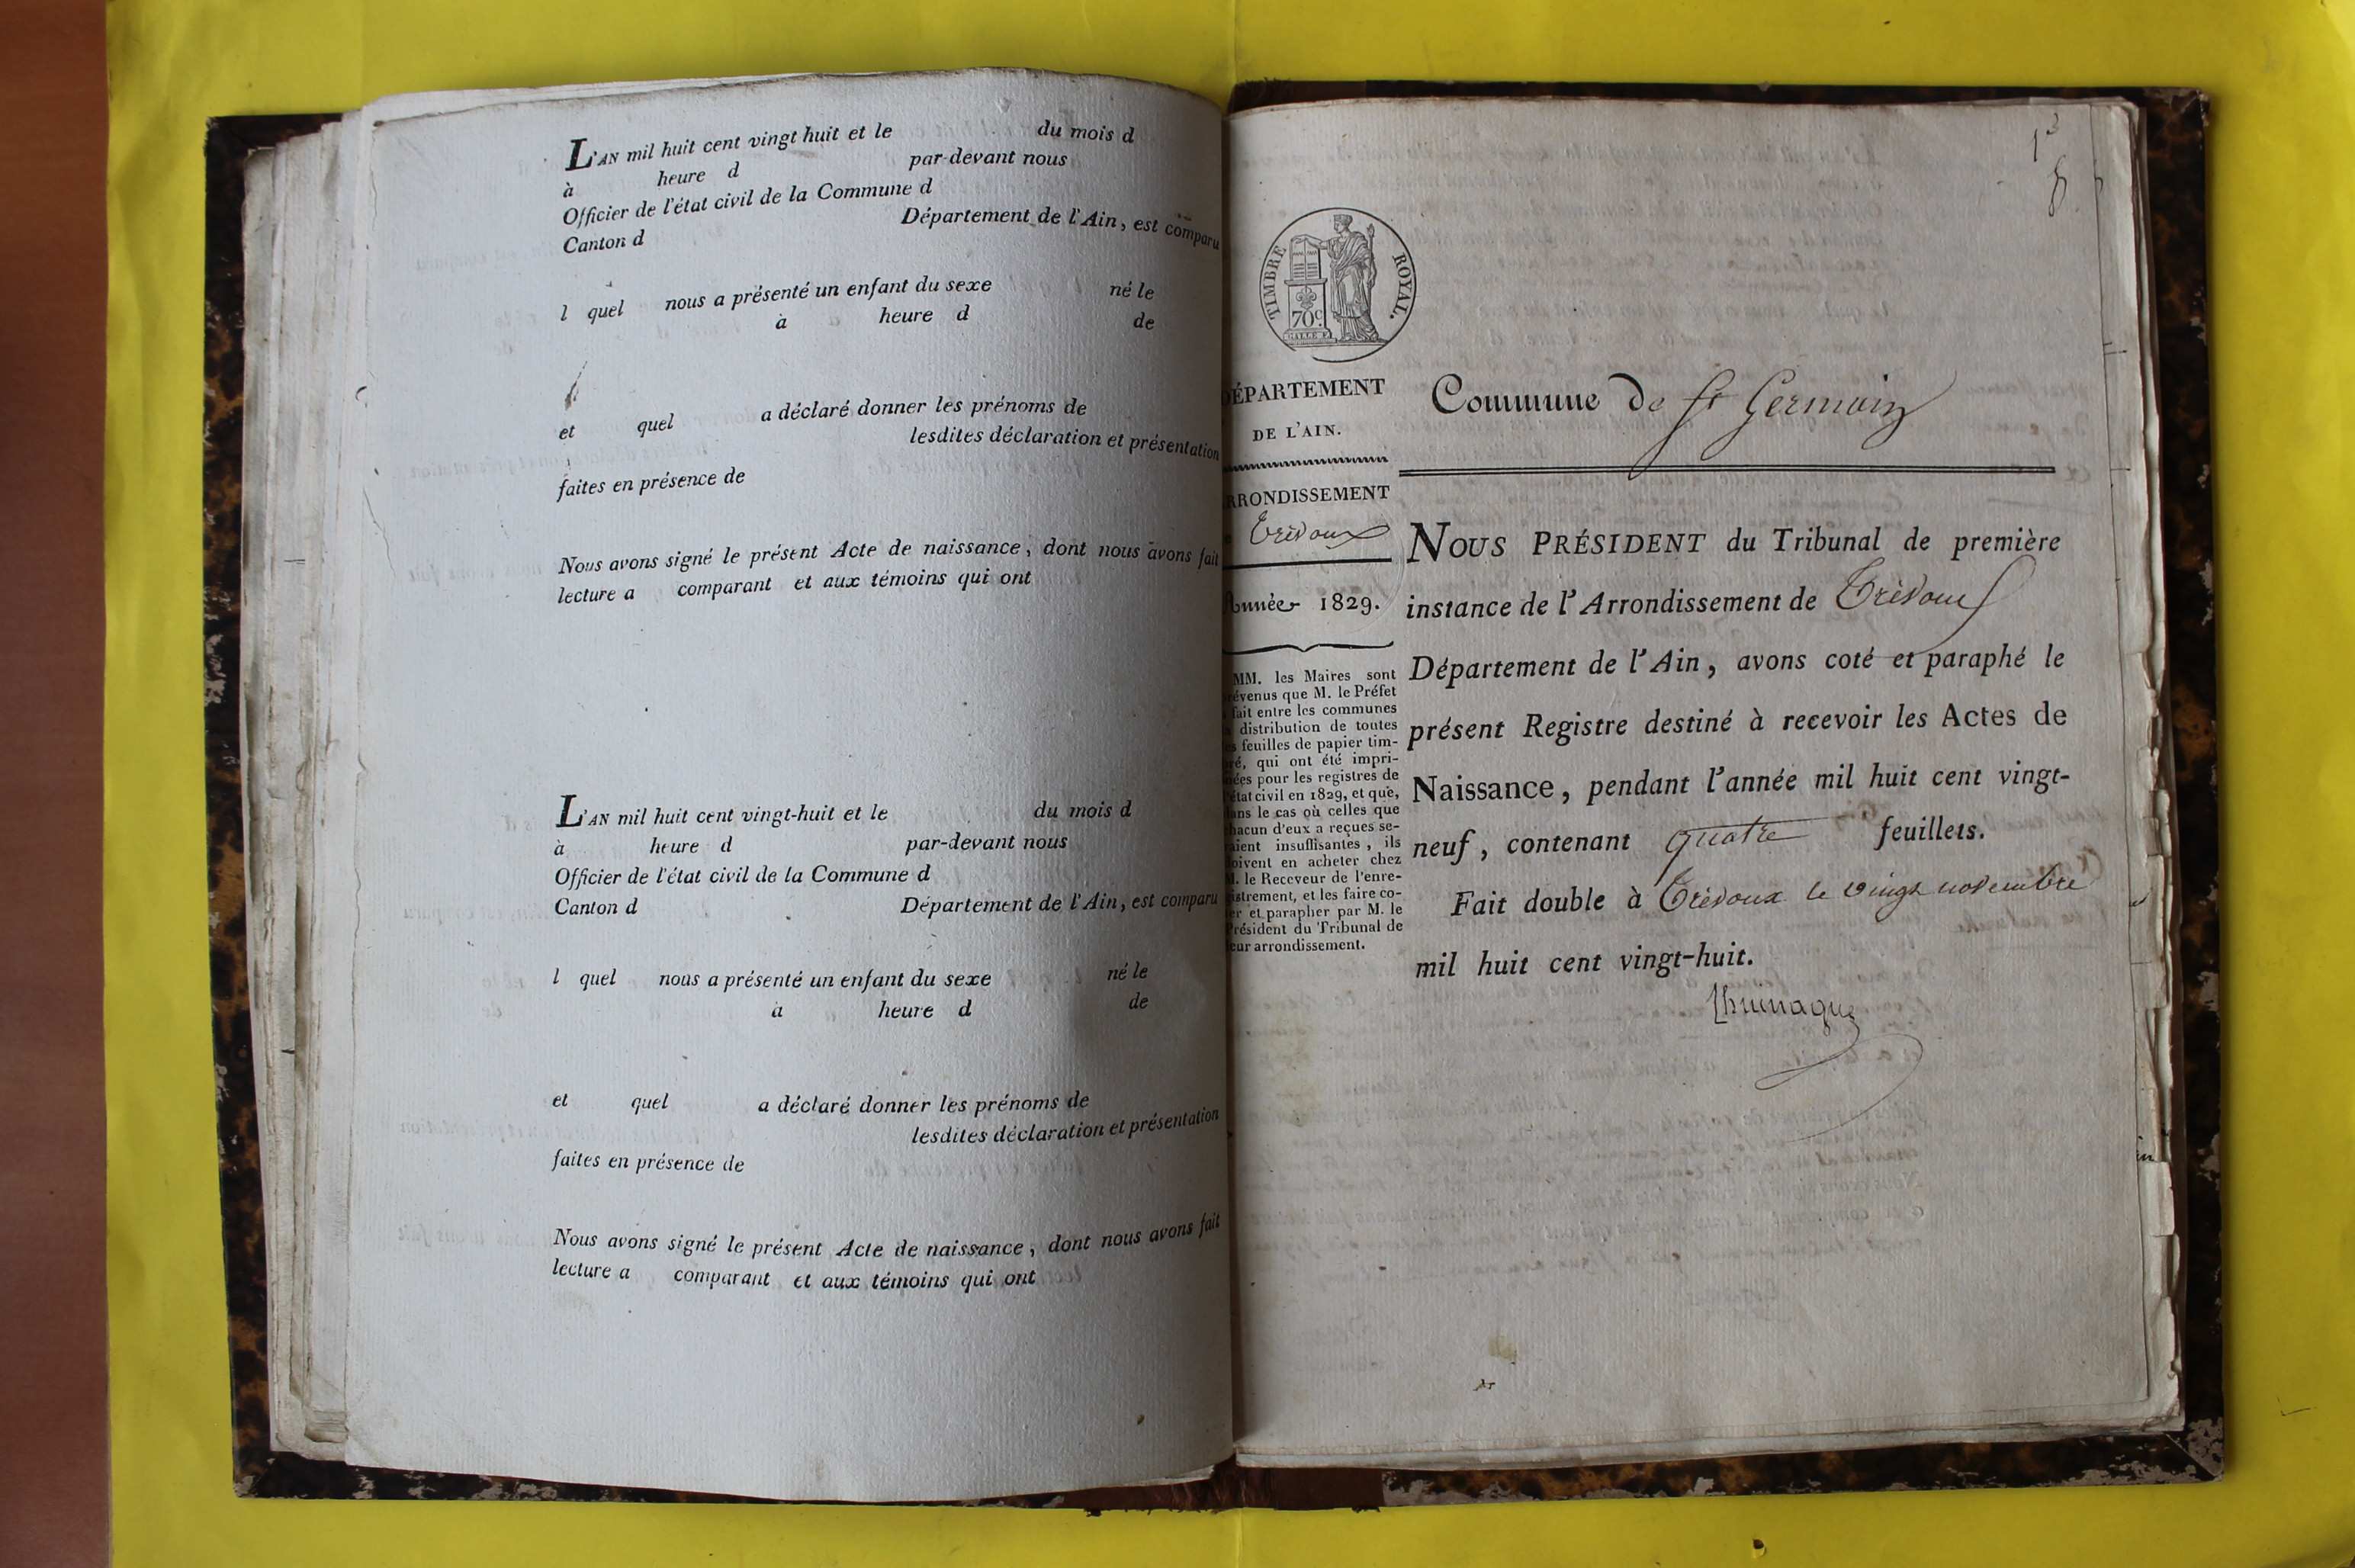 L'AN mil huit cent vingt huit et le du mois d
à heure d par-devant nous
Officier de l'état civil de la Commune d
Canton d Département de l'Ain, est comparu
l quel nous a présenté un enfant du sexe né le
à heure d de
et quel a déclaré donner les prénoms de
lesdites déclaration et présentation
faites en présence de
Nous avons signé le présent Acte de naissance, dont nous avons fait
lecture a comparant et aux témoins qui ont
L'AN mil huit cent vingt-huit et le du mois d
à heure d par-devant nous
Officier de l'état civil de la Commune d
Canton d Département de l'Ain, est comparu
l quel nous a présenté un enfant du sexe né le
à heure d de
et quel a déclaré donner les prénoms de
lesdites déclaration et présentation
faites en présence de
Nous avons signé le présent Acte de naissance, dont nous avons fait
lecture a comparant et aux témoins qui ont
TIMBRE ROYAL.
70c
DÉPARTEMENT
DE L'AIN.
ARRONDISSEMENT
Trévoux
Année 1829.
MM. les Maires sont
prévenus que M. le Préfet
fait entre les communes
distribution de toutes
feuilles de papier tim-
bré, qui ont été impri-
mées pour les registres de
l'état civil en 1829, et que,
dans le cas où celles que
chacun d'eux a reçues se-
raient insuffisantes, ils
doivent en acheter chez
M. le Receveur de l'enre-
gistrement, et les faire co-
ter et parapher par M. le
Président du Tribunal de
leur arrondissement.
Commune de St Germain
NOUS PRÉSIDENT du Tribunal de première
instance de l'Arrondissement de Trévoux
Département de l'Ain, avons coté et paraphé le
présent Registre destiné à recevoir les Actes de
Naissance, pendant l'année mil huit cent vingt-
neuf, contenant quatre feuillets.
Fait double à Trévoux le vingt novembre
mil huit cent vingt-huit.